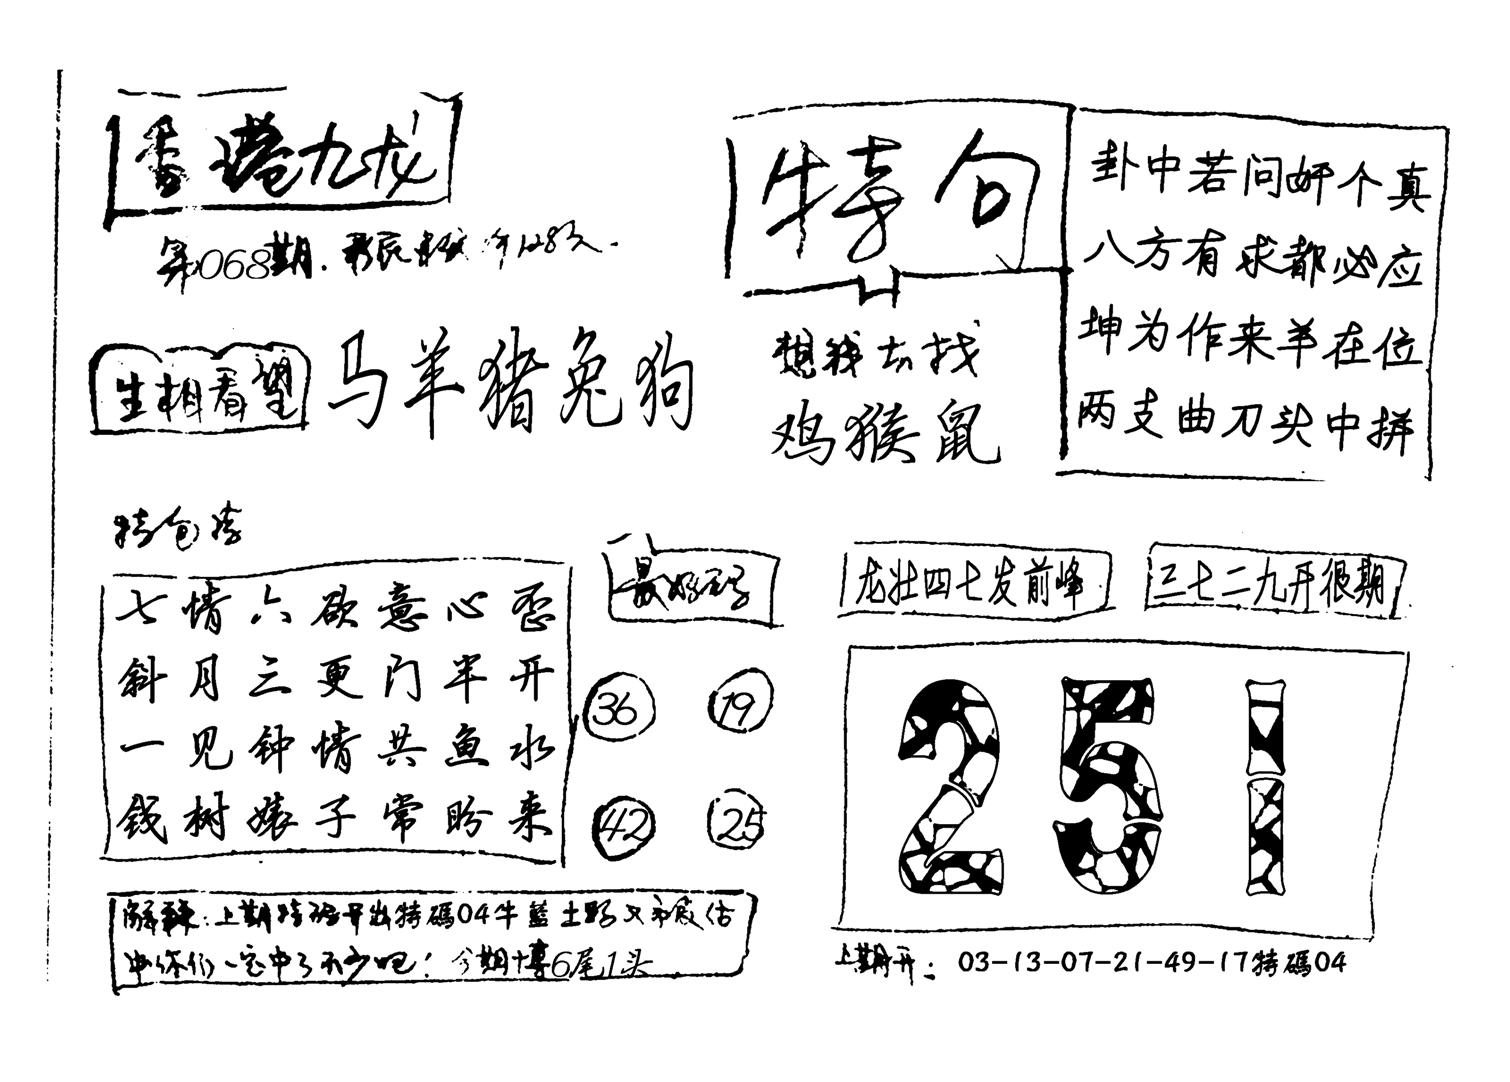 香港九龙
第068期.
特句
卦中若问奸个真
八方有求都必应
坤为作来羊在位
两支曲刀头中拼
想钱去找
鸡猴鼠
生相看望
马羊猪兔狗
特包
七情六欲意心歪
斜月三更门半开
一见钟情共鱼水
钱树婊子常盼来
最好码
36 19
42 25
龙壮四七发前峰
三七二九开很期
251
解: 上期特碼开出特碼04牛藍土
你们一定中了不少吧! 今期博6尾1头
上期开: 03-13-07-21-49-17特碼04